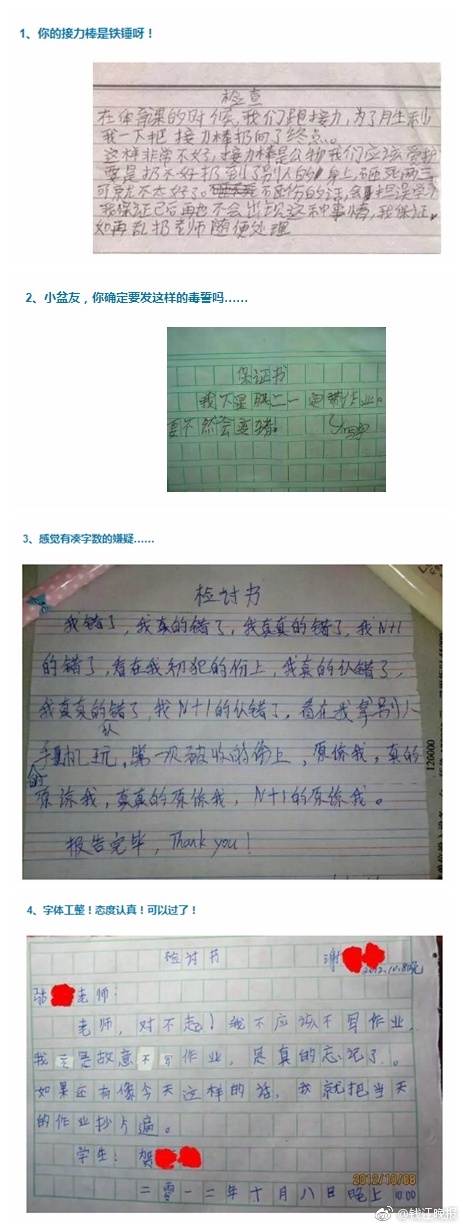 1、你的接力棒是铁锤呀！
检查
在体育课的时候,我们跑接力,为了胜利
我一下把接力棒扔向了终点。
这样非常不好,接力棒是公物我们应该爱护
要是扔不好扔到了别人的身上,砸死两三
可就不太好了。不死伤的话,会耽误学
我保证已后再也不会出现这种事情,我保证。
如再乱扔老师随便处理
2、小盆友，你确定要发这样的毒誓吗……
保证书
我下星期二一定带作业。
要不然会变猪。
3、感觉有凑字数的嫌疑……
检讨书
我错了，我真的错了，我真真的错了，我N+1
的错了，看在我初犯的份上，我真的认错了，
我真真的认错了，我N+1的认错了，看在我拿别人
的手机玩，第一次被收的份上，原谅我，真的
原谅我，真真的原谅我，N+1的原谅我。
报告完毕，Thank you！
120000
4、字体工整！态度认真！可以过了！
检讨书 谢
2012.10.8晚
张 老师：
老师，对不起！我不应该不写作业，
我 是故意不写作业，是真的忘记了。
如果还有像今天这样的话，我就把当天
的作业抄 遍。
学生：贺
2012/10/08
二零一二年十月八日晚上10:00
@钱江晚报